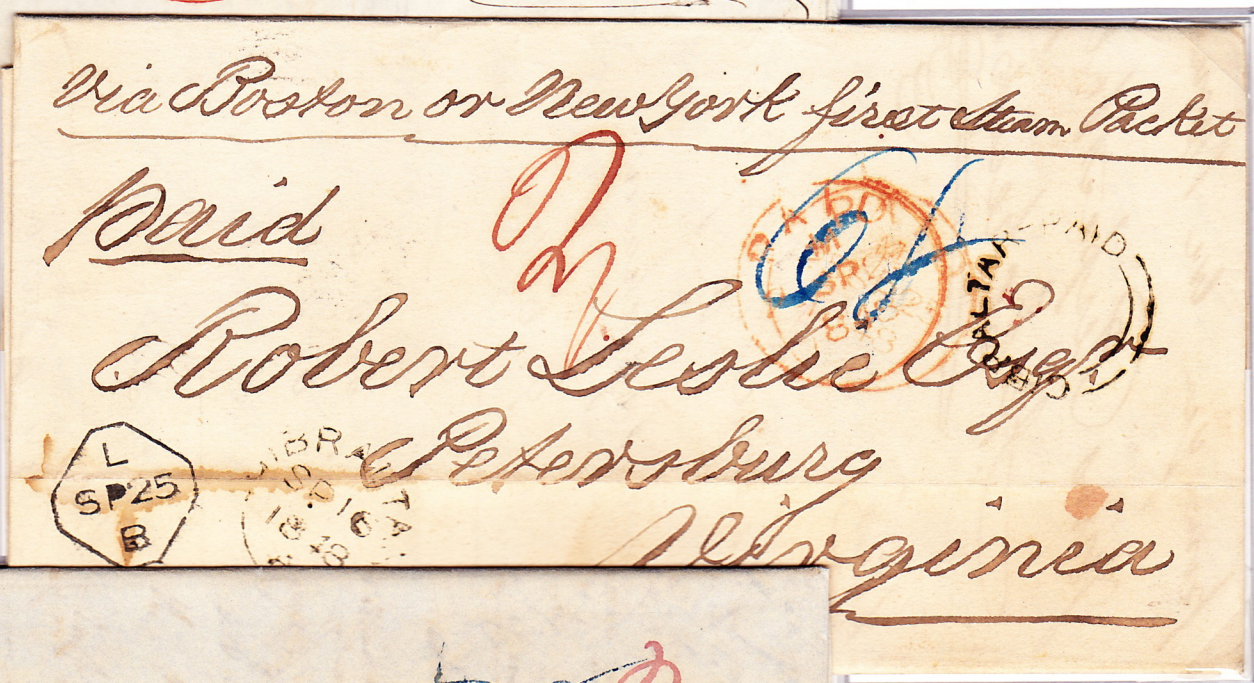 via Boston or New York first Steam Packet
paid
PAID
GIBRALTAR PAID
Robert Leslie Esqr
Petersburg
Virginia
L
SP25
B
GIBRALTAR
SP16
1848